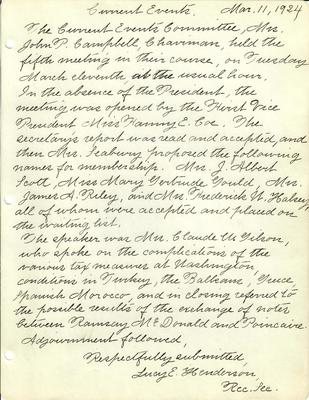 Current Events. Mar. 11, 1924
The Current Events Committee, Mrs.
John P. Campbell, Chairman, held the
fifth meeting in their course, on Tuesday
March eleventh at the usual hour.
In the absence of the President, the
meeting was opened by the First Vice
President Miss Fanny E. Coe. The
secretary's report was read and accepted, and
then Mrs. Seabury proposed the following
names for membership. Mrs. J. Albert
Scott, Miss Mary Gertrude Gould, Mrs.
James A. Riley, and Mrs. Frederick W. Halsey,
all of whom were accepted and placed on
the waiting list.
The speaker was Mr. Claude U. Gilson,
who spoke on the complications of the
various tax measures at Washington,
conditions in Turkey, the Balkans, Greece,
Spanish Moroco, and in closing referred to
the possible results of the exchange of notes
between Ramsay McDonald and Poincaire.
Adjournment followed,
Respectfully submitted,
Lucy E. Henderson,
Rec. Sec.